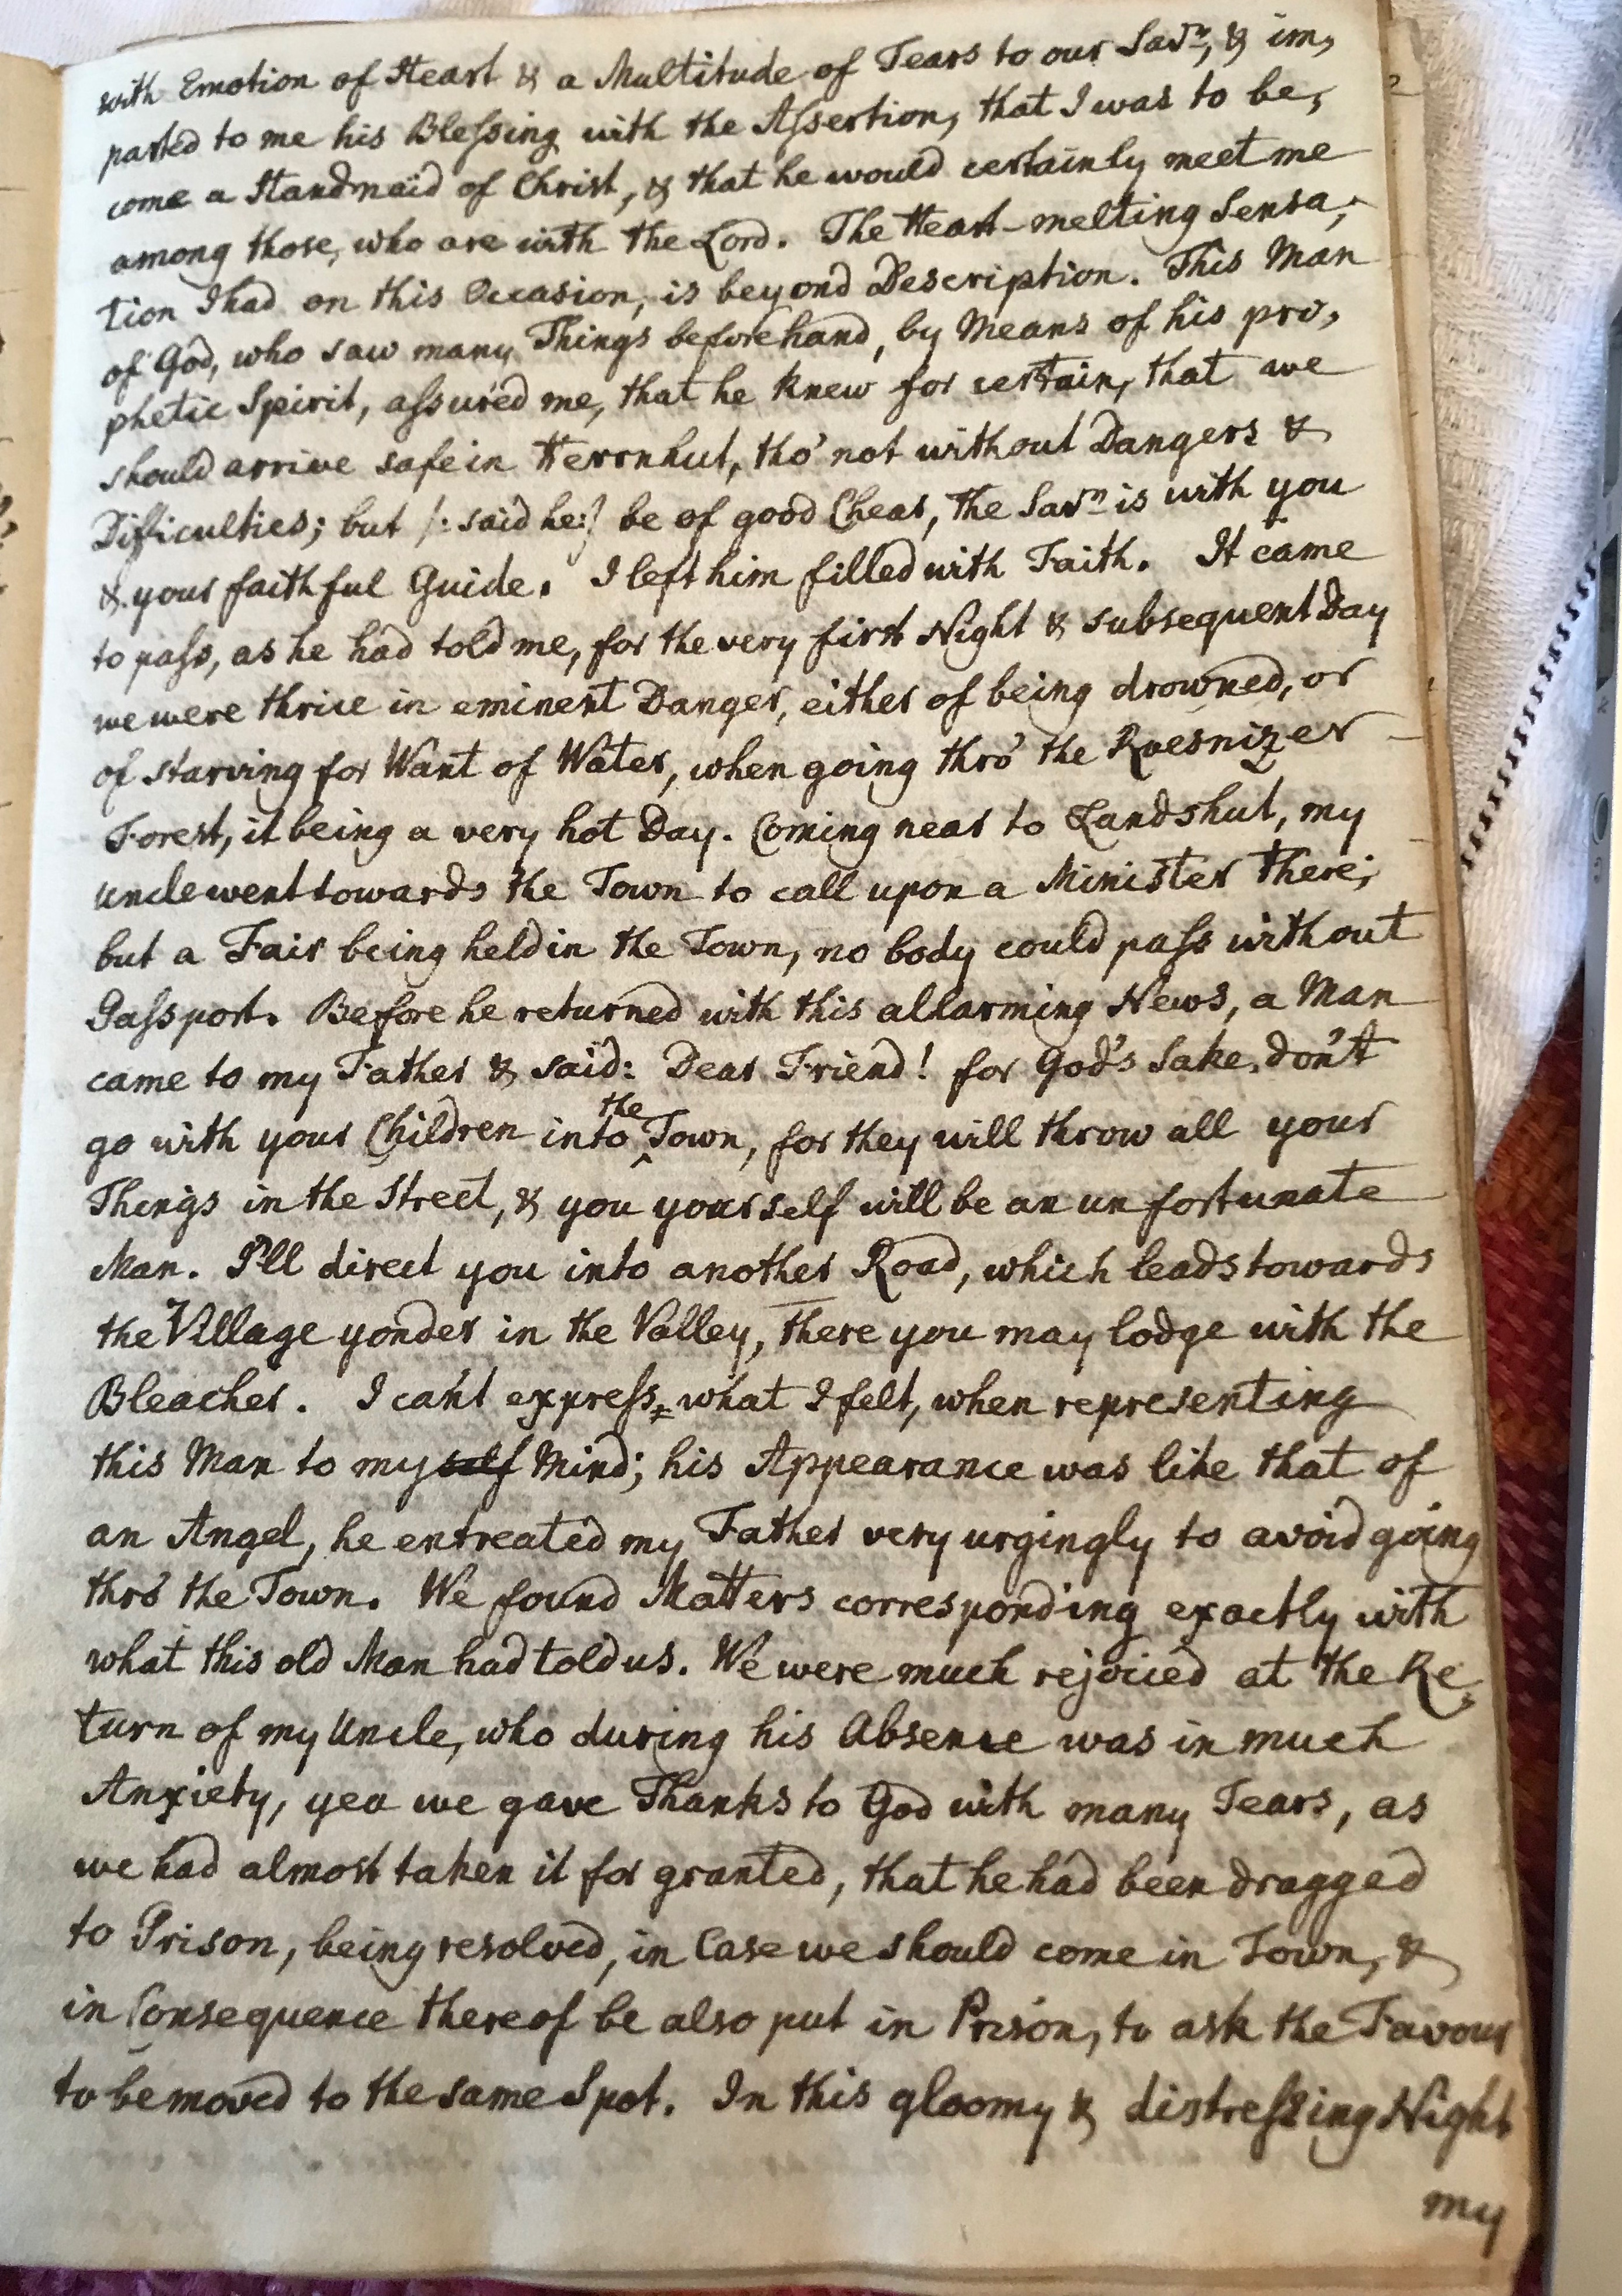 with Emotion of Heart & a Multitude of Tears to our Savr, & im,
parted to me his Blessing with the Assertion, that I was to be,
come a Handmaid of Christ, & that he would certainly meet me
among those, who are with the Lord. The Heart-melting Sensa,
tion I had on this Occasion, is beyond Description. This Man
of God, who saw many Things beforehand, by Means of his pro,
phetic Spirit, assured me, that he knew for certain, that we
should arrive safe in Herrnhut, tho' not without Dangers &
Difficulties; but /: said he:/ be of good Chear, the Savr is with you
& your faithful Guide. I left him filled with Faith. It came
to pass, as he had told me, for the very first Night & subsequent Day
we were thrice in eminent Danger, either of being drowned, or
of starving for Want of Water, when going thro' the Roesnizer
Forest, it being a very hot Day. Coming near to Landshut, my
Uncle went towards the Town to call upon a Minister there;
but a Fair being held in the Town, no body could pass without
Passport. Before he returned with this allarming News, a Man
came to my Father & said: Dear Friend! for God's Sake, don't
go with your Children into the Town, for they will throw all your
Things in the Street, & you yourself will be an unfortunate
Man. I'll direct you into another Road, which leads towards
the Village yonder in the Valley, there you may lodge with the
Bleacher. I can't express, what I felt, when representing
this Man to my self Mind; his Appearance was like that of
an Angel, he entreated my Father very urgingly to avoid going
thro' the Town. We found Matters corresponding exactly with
what this old Man had told us. We were much rejoiced at the Re,
turn of my Uncle, who during his Absence was in much
Anxiety, yea we gave Thanks to God with many Tears, as
we had almost taken it for granted, that he had been dragged
to Prison, being resolved, in Case we should come in Town, &
in Consequence thereof be also put in Prison, to ask the Favour
to be moved to the same Spot. In this gloomy & distressing Night
my